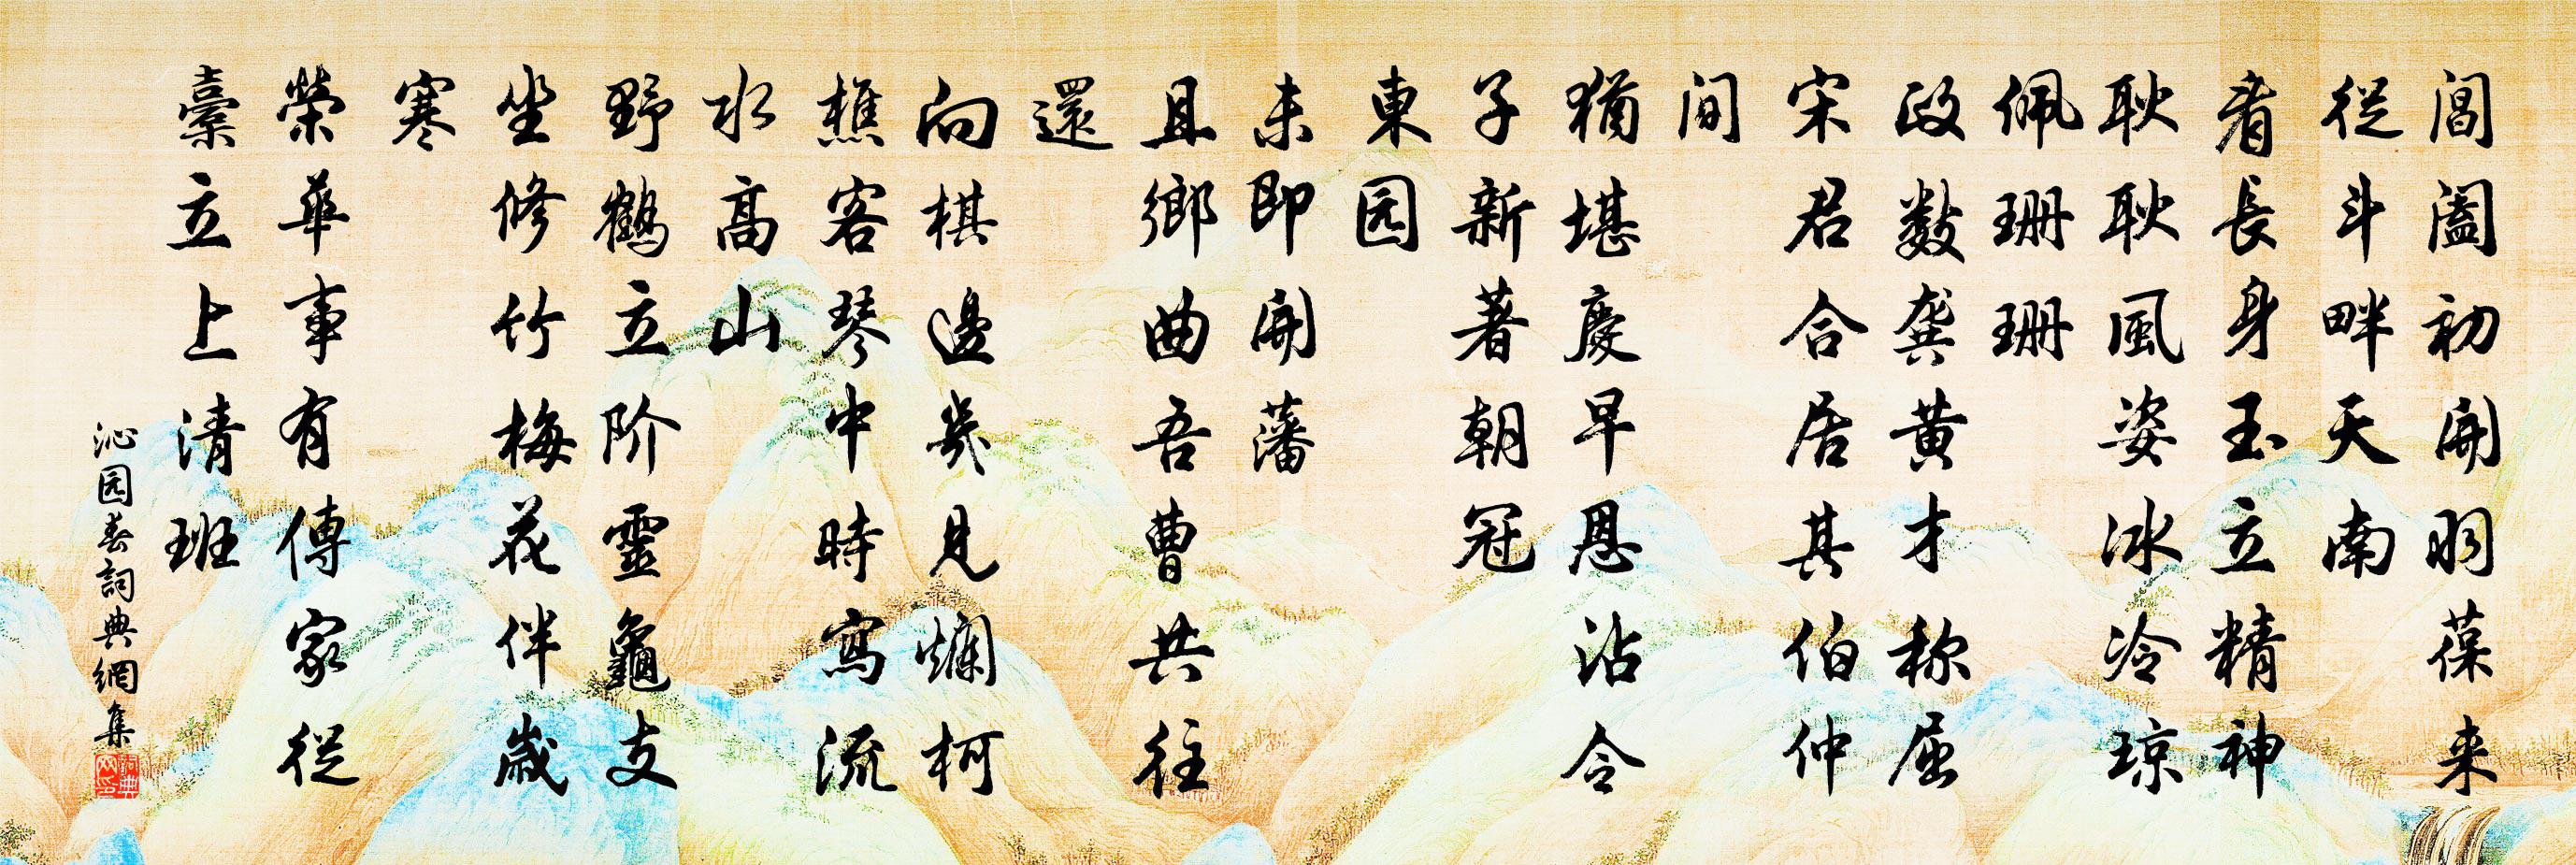 閶闔初開羽葆来
從斗畔天南
看長身玉立精神
耿耿風姿冰冷琼
佩珊珊
政数龚黄才称屈
宋君合居其伯仲
间
猶堪慶早恩沾令
子新著朝冠
東园
未即開藩
且鄉曲吾曹共往
還
向棋邊幾見爛柯
樵客琴中時寫流
水高山
野鶴立阶靈龜支
坐修竹梅花伴歲
寒
榮華事有傳家從
橐立上清班
沁园春詞典網集
詞典网印